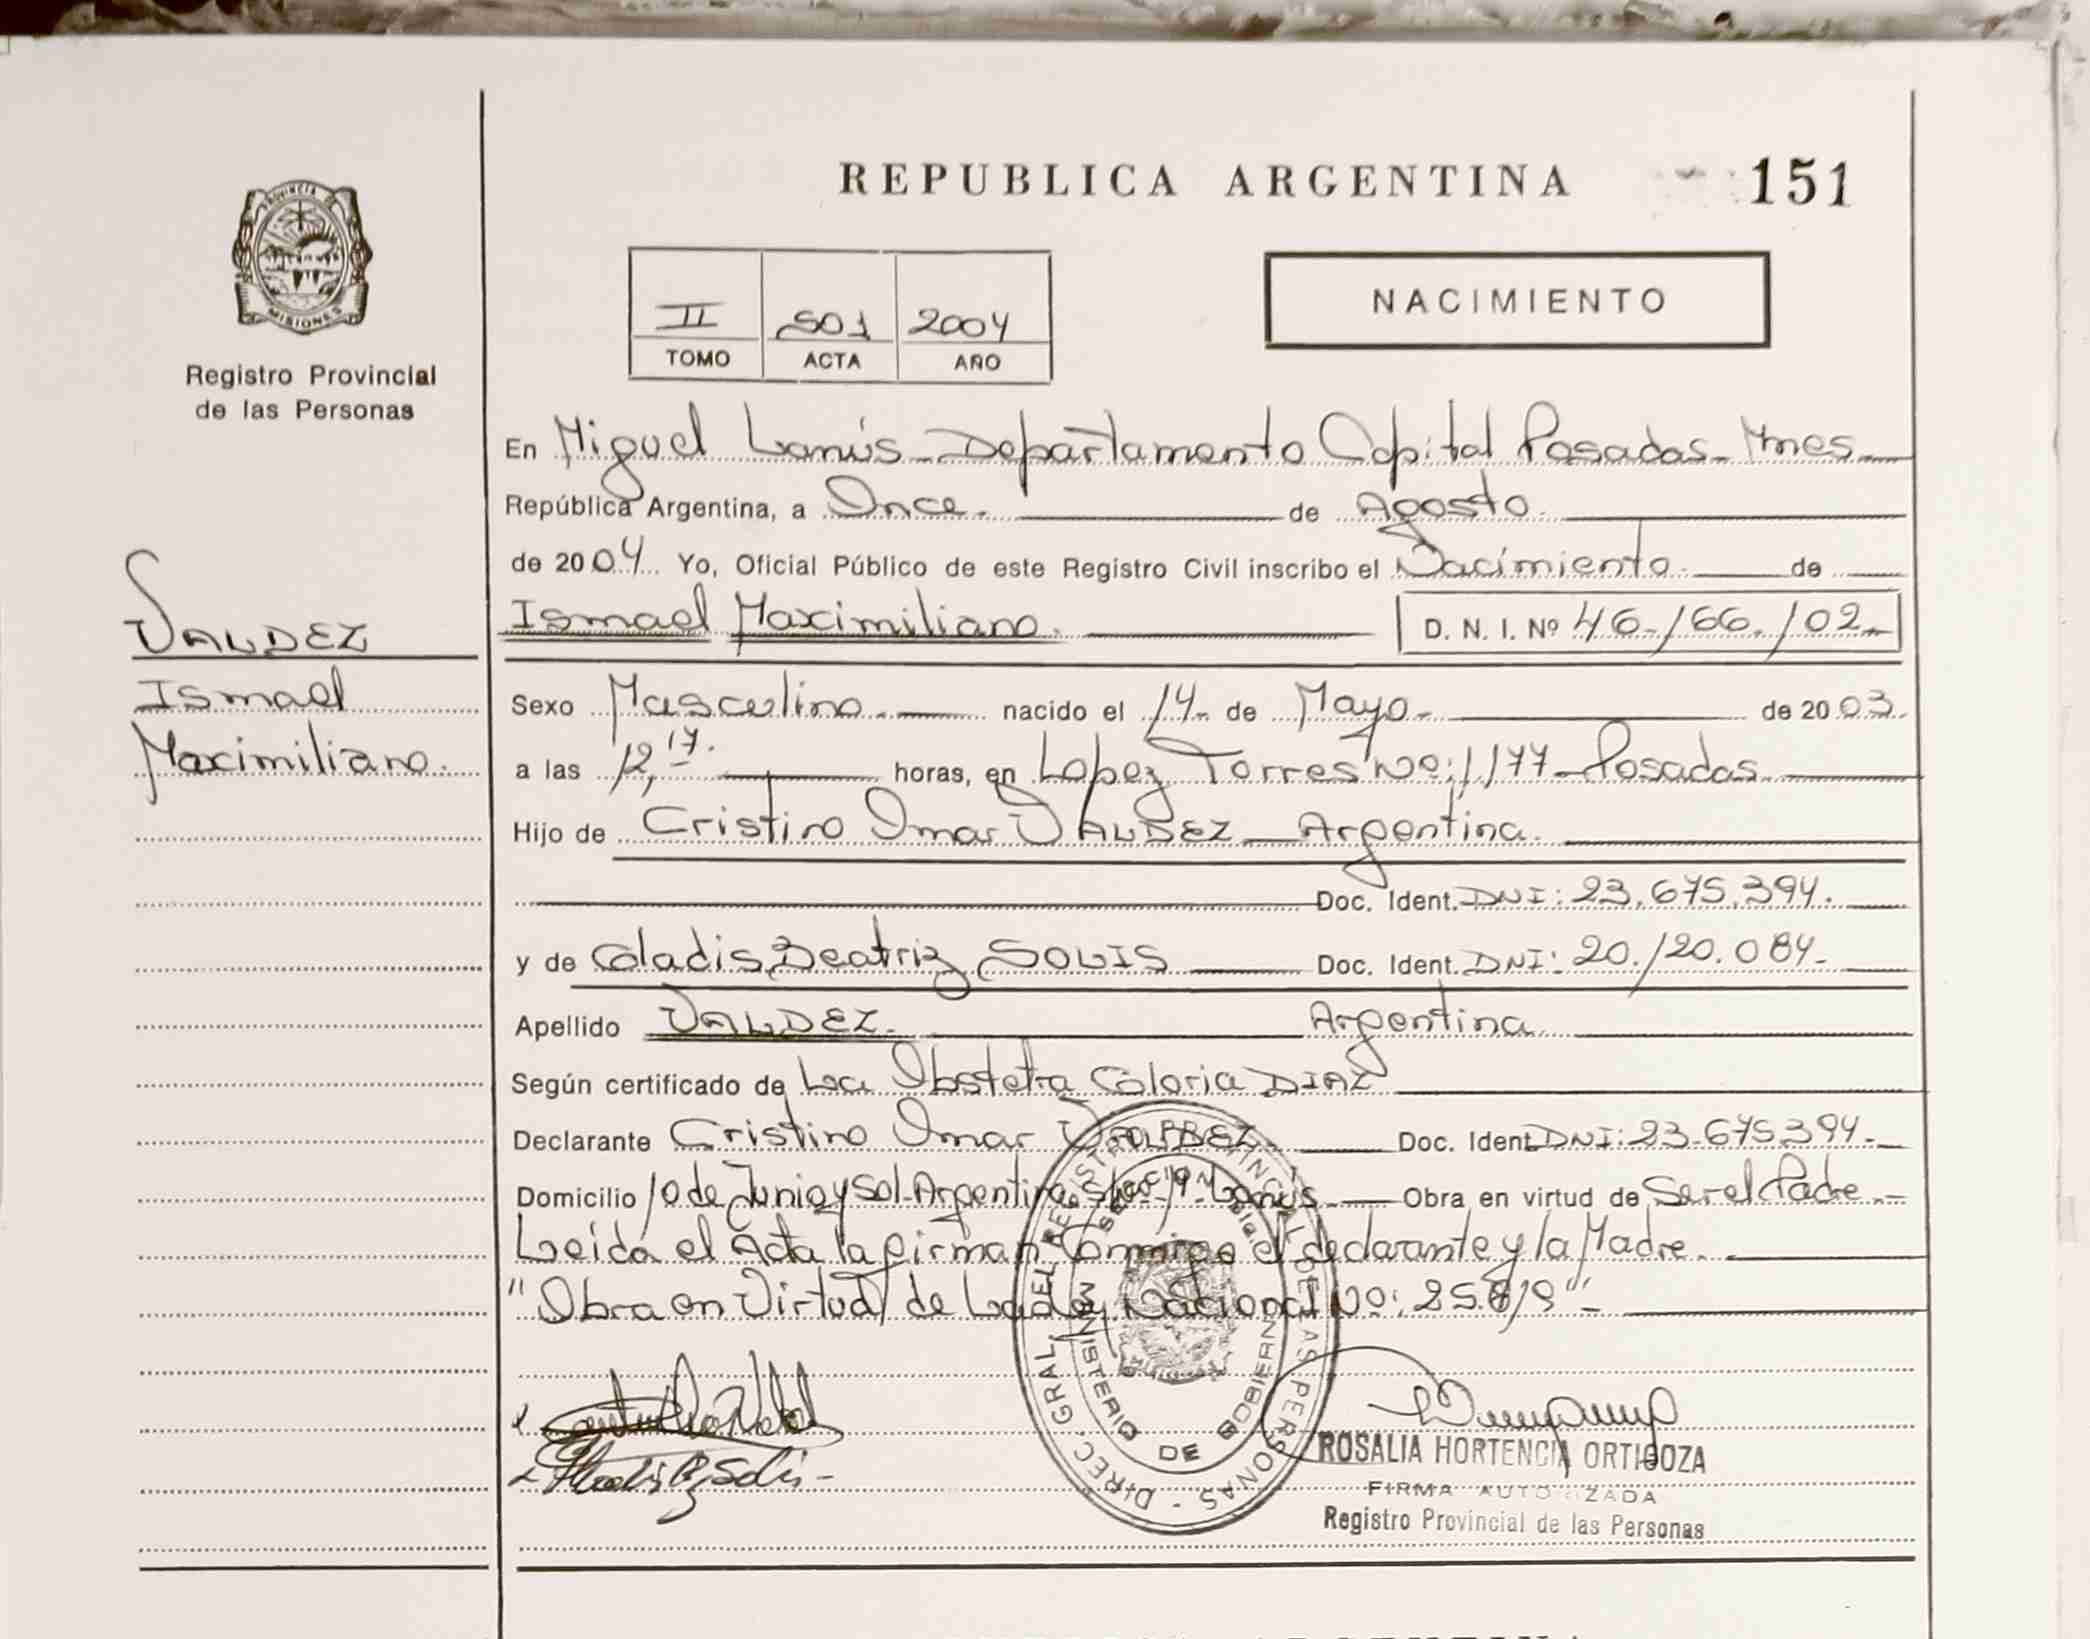 REPUBLICA ARGENTINA
151
PROVINCIA DE
MISIONES
Registro Provincial
de las Personas
II 501 2004
TOMO ACTA AÑO
NACIMIENTO
En Miguel Lanús - Departamento Capital Posadas - Mnes.
República Argentina, a Once. de Agosto.
de 2004 Yo, Oficial Público de este Registro Civil inscribo el Nacimiento de
Ismael Maximiliano. D. N. I. Nº 46.166.102.
VALDEZ
Ismael
Maximiliano.
Sexo Masculino. nacido el 14 de Mayo de 2003.
a las 12,17. horas, en Lopez Torres Nº: 1177 - Posadas.
Hijo de Cristino Omar VALDEZ - Argentina.
Doc. Ident. DNI: 23.675.394.
y de Gladis Beatriz SOLIS Doc. Ident. DNI: 20.120.084.
Apellido VALDEZ. Argentina
Según certificado de La Obstetra Gloria DIAZ
Declarante Cristino Omar VALDEZ Doc. Ident. DNI: 23.675.394.
Domicilio 10 de Junio y Sol Argentino Lanus Obra en virtud de Ser el Padre.-
Leida el Acta la firman Conmigo el declarante y la Madre.
"Obra en Virtud de La Ley Nacional Nº: 25.819"-
DIREC. GRAL. DEL REGISTRO PROVINCIAL DE LAS PERSONAS
MINISTERIO DE GOBIERNO
Gladis B. Solis -
ROSALIA HORTENCIA ORTIGOZA
FIRMA AUTORIZADA
Registro Provincial de las Personas